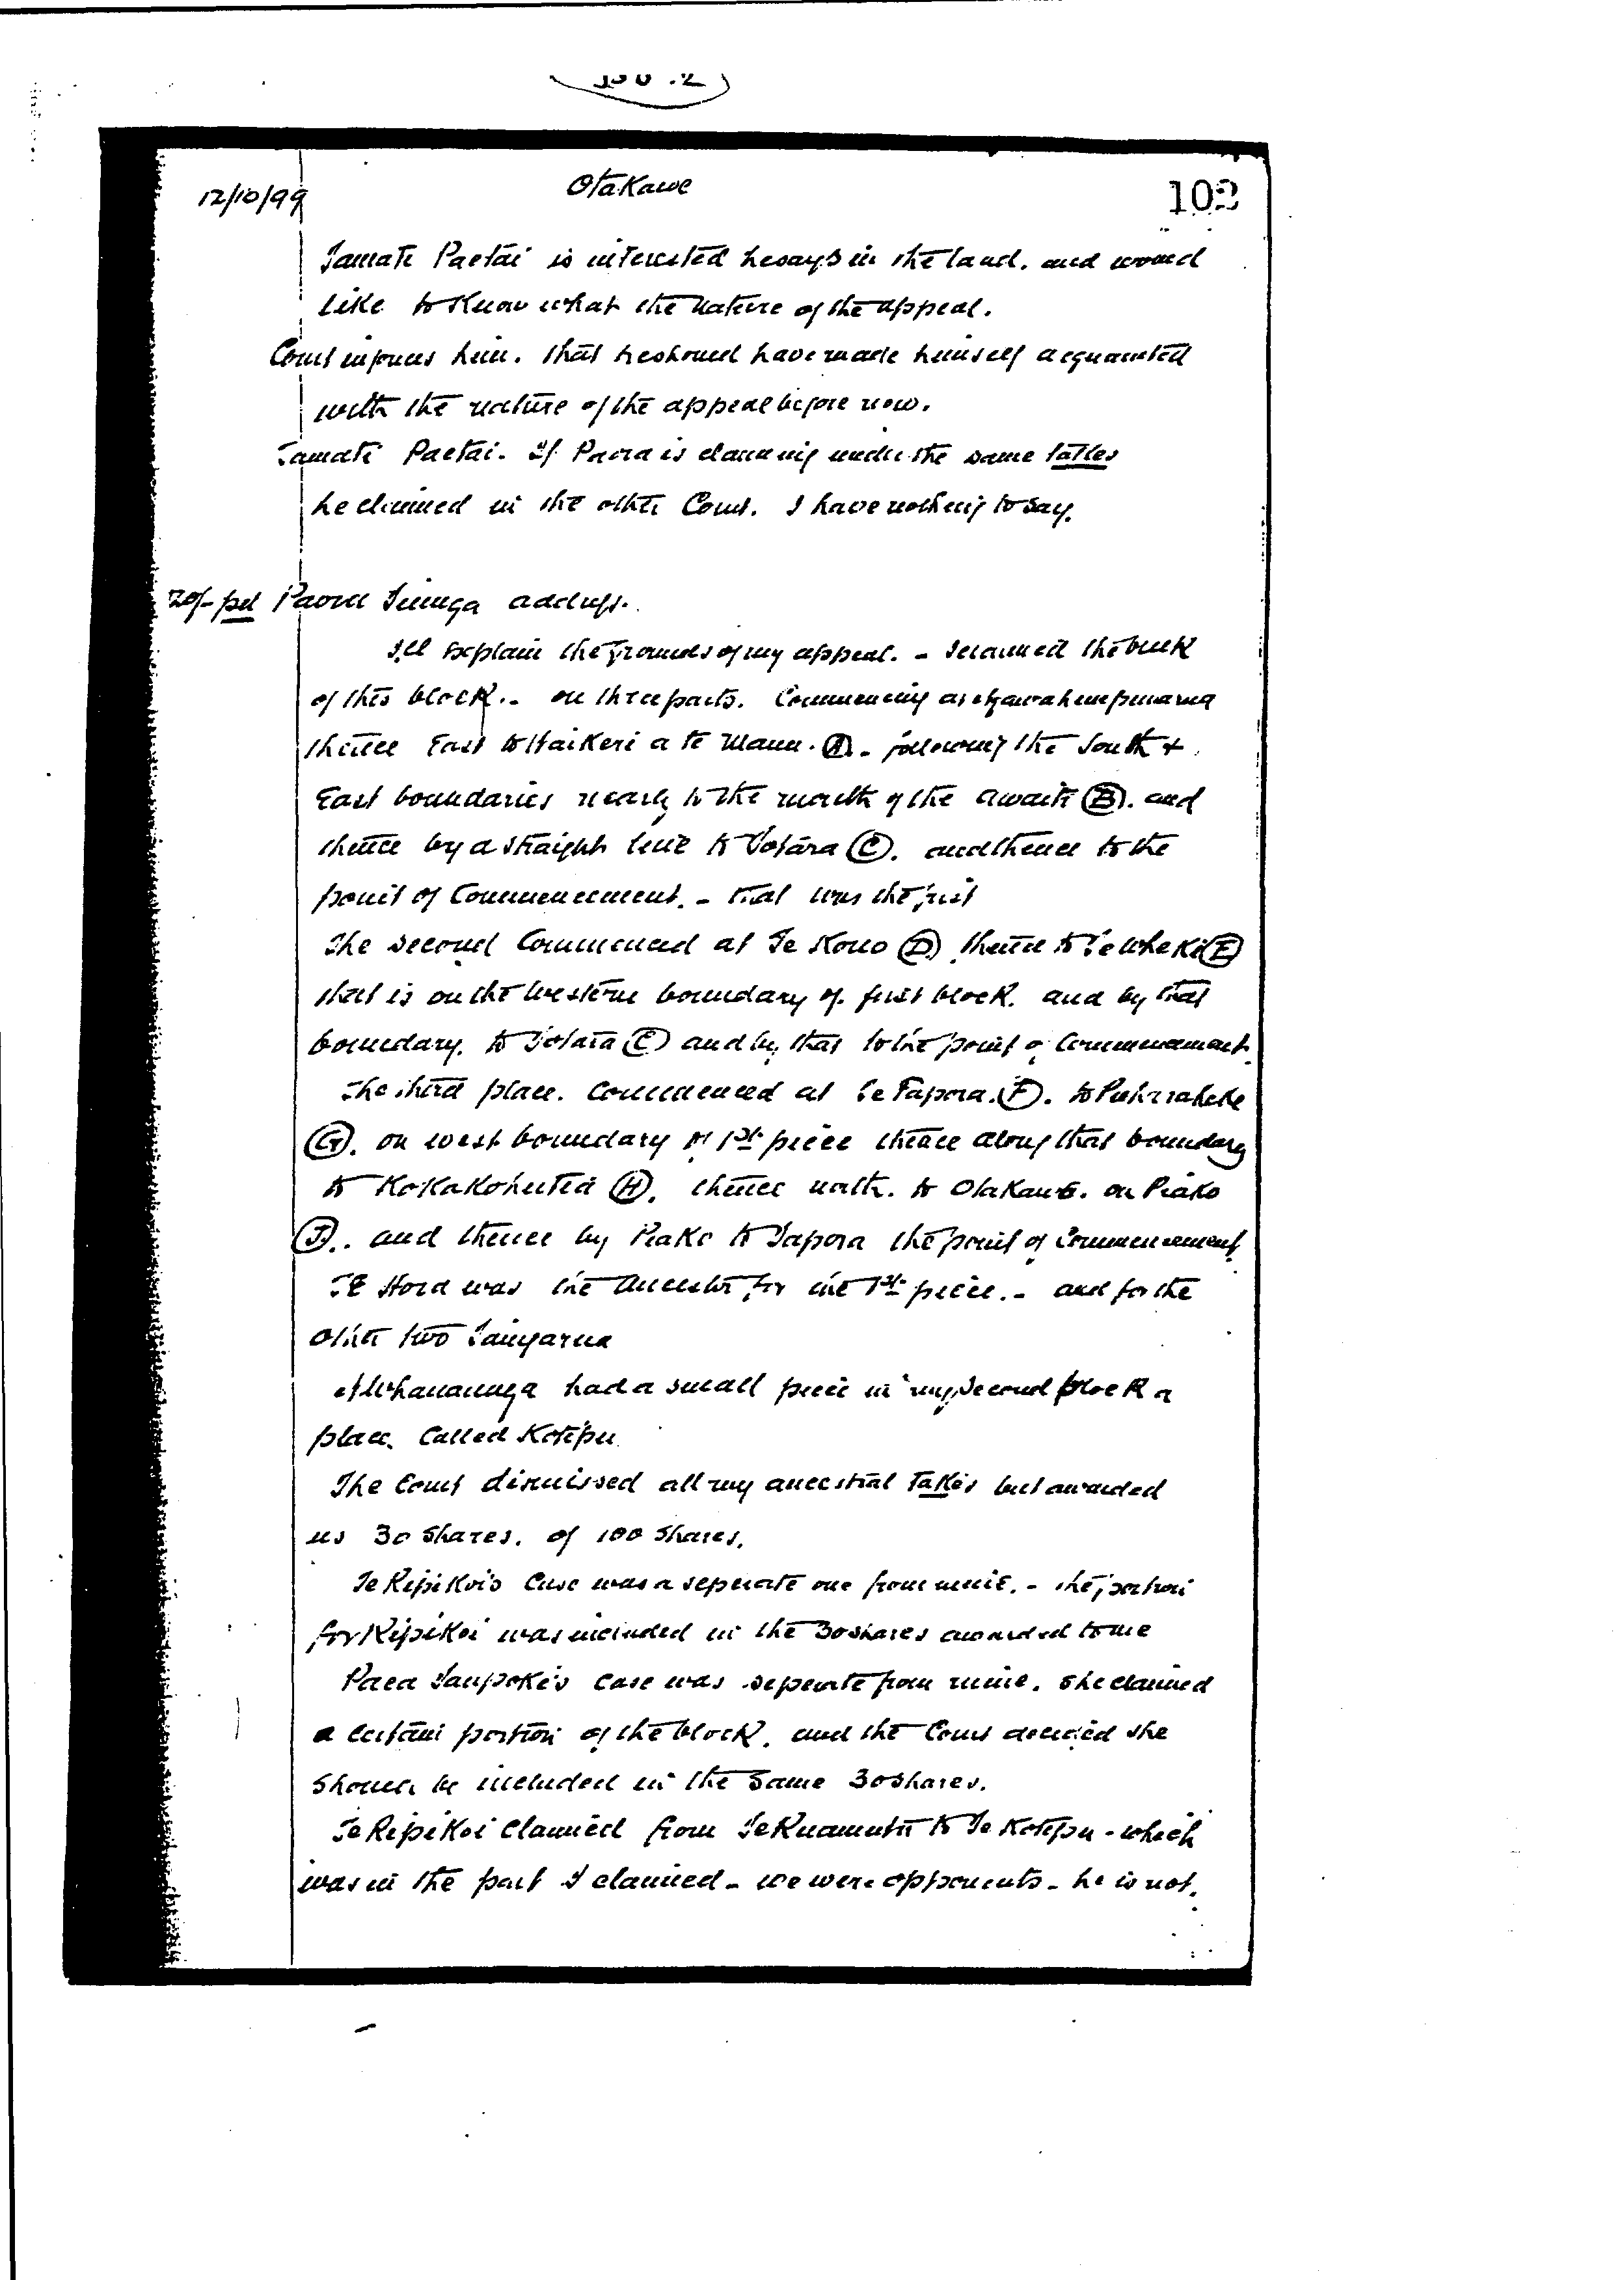 12/10/99
Otakawe
103
Tamati Paetai is interested he says in the land. and would
like to Know what the nature of the appeal.
Court informs him. that he should have made himself acquainted
with the nature of the appeal before now.
Tamati Paetai. If Paora is claiming under the same takes
he claimed in the other Court. I have nothing to say.
20/- pd Paora Tiunga address.
I'll explain the grounds of my appeal. - I claimed the bulk
of this block. - on three parts. Commencing at
thence East to Haikeri a te Manu. (A). - following the South +
East boundaries nearly to the mouth of the Awaiti (B). and
thence by a straight line to Totara (C). and thence to the
point of Commencement. - that was the first
The second Commenced at Te Kono (D) thence to Te Wheki (E)
that is on the Western boundary of first block. and by that
boundary. to Totara (C) and by that to the point of Commencement.
The third place. Commenced at Te Tapora. (F). to
(G). on west boundary of 1st piece thence along that boundary
to Kokakohutia (H). thence north. to Otakawe. on Piako
(J). . and thence by Piako to Tapora the point of Commencement
Te Hora was the Ancestor for the 1st piece. - and for the
Other two Taingarua
N'Whanaunga had a small piece in my second block a
place. Called Kotepu
The Court dismissed all my ancestral Takes but awarded
us 30 Shares. of 100 Shares.
Te Kipikoi's Case was a seperate one from mine. - the portion
for Kipikoi was included in the 30 shares awarded to me
Paea Taupoki's Case was seperate from mine. She claimed
a Certain portion of the block. and the Court decided she
Should be included in the Same 30 Shares.
Te Kipikoi Claimed from Te Ruamutu to Te Kotepu - which
was in the part I claimed - we were opponents - he is not.